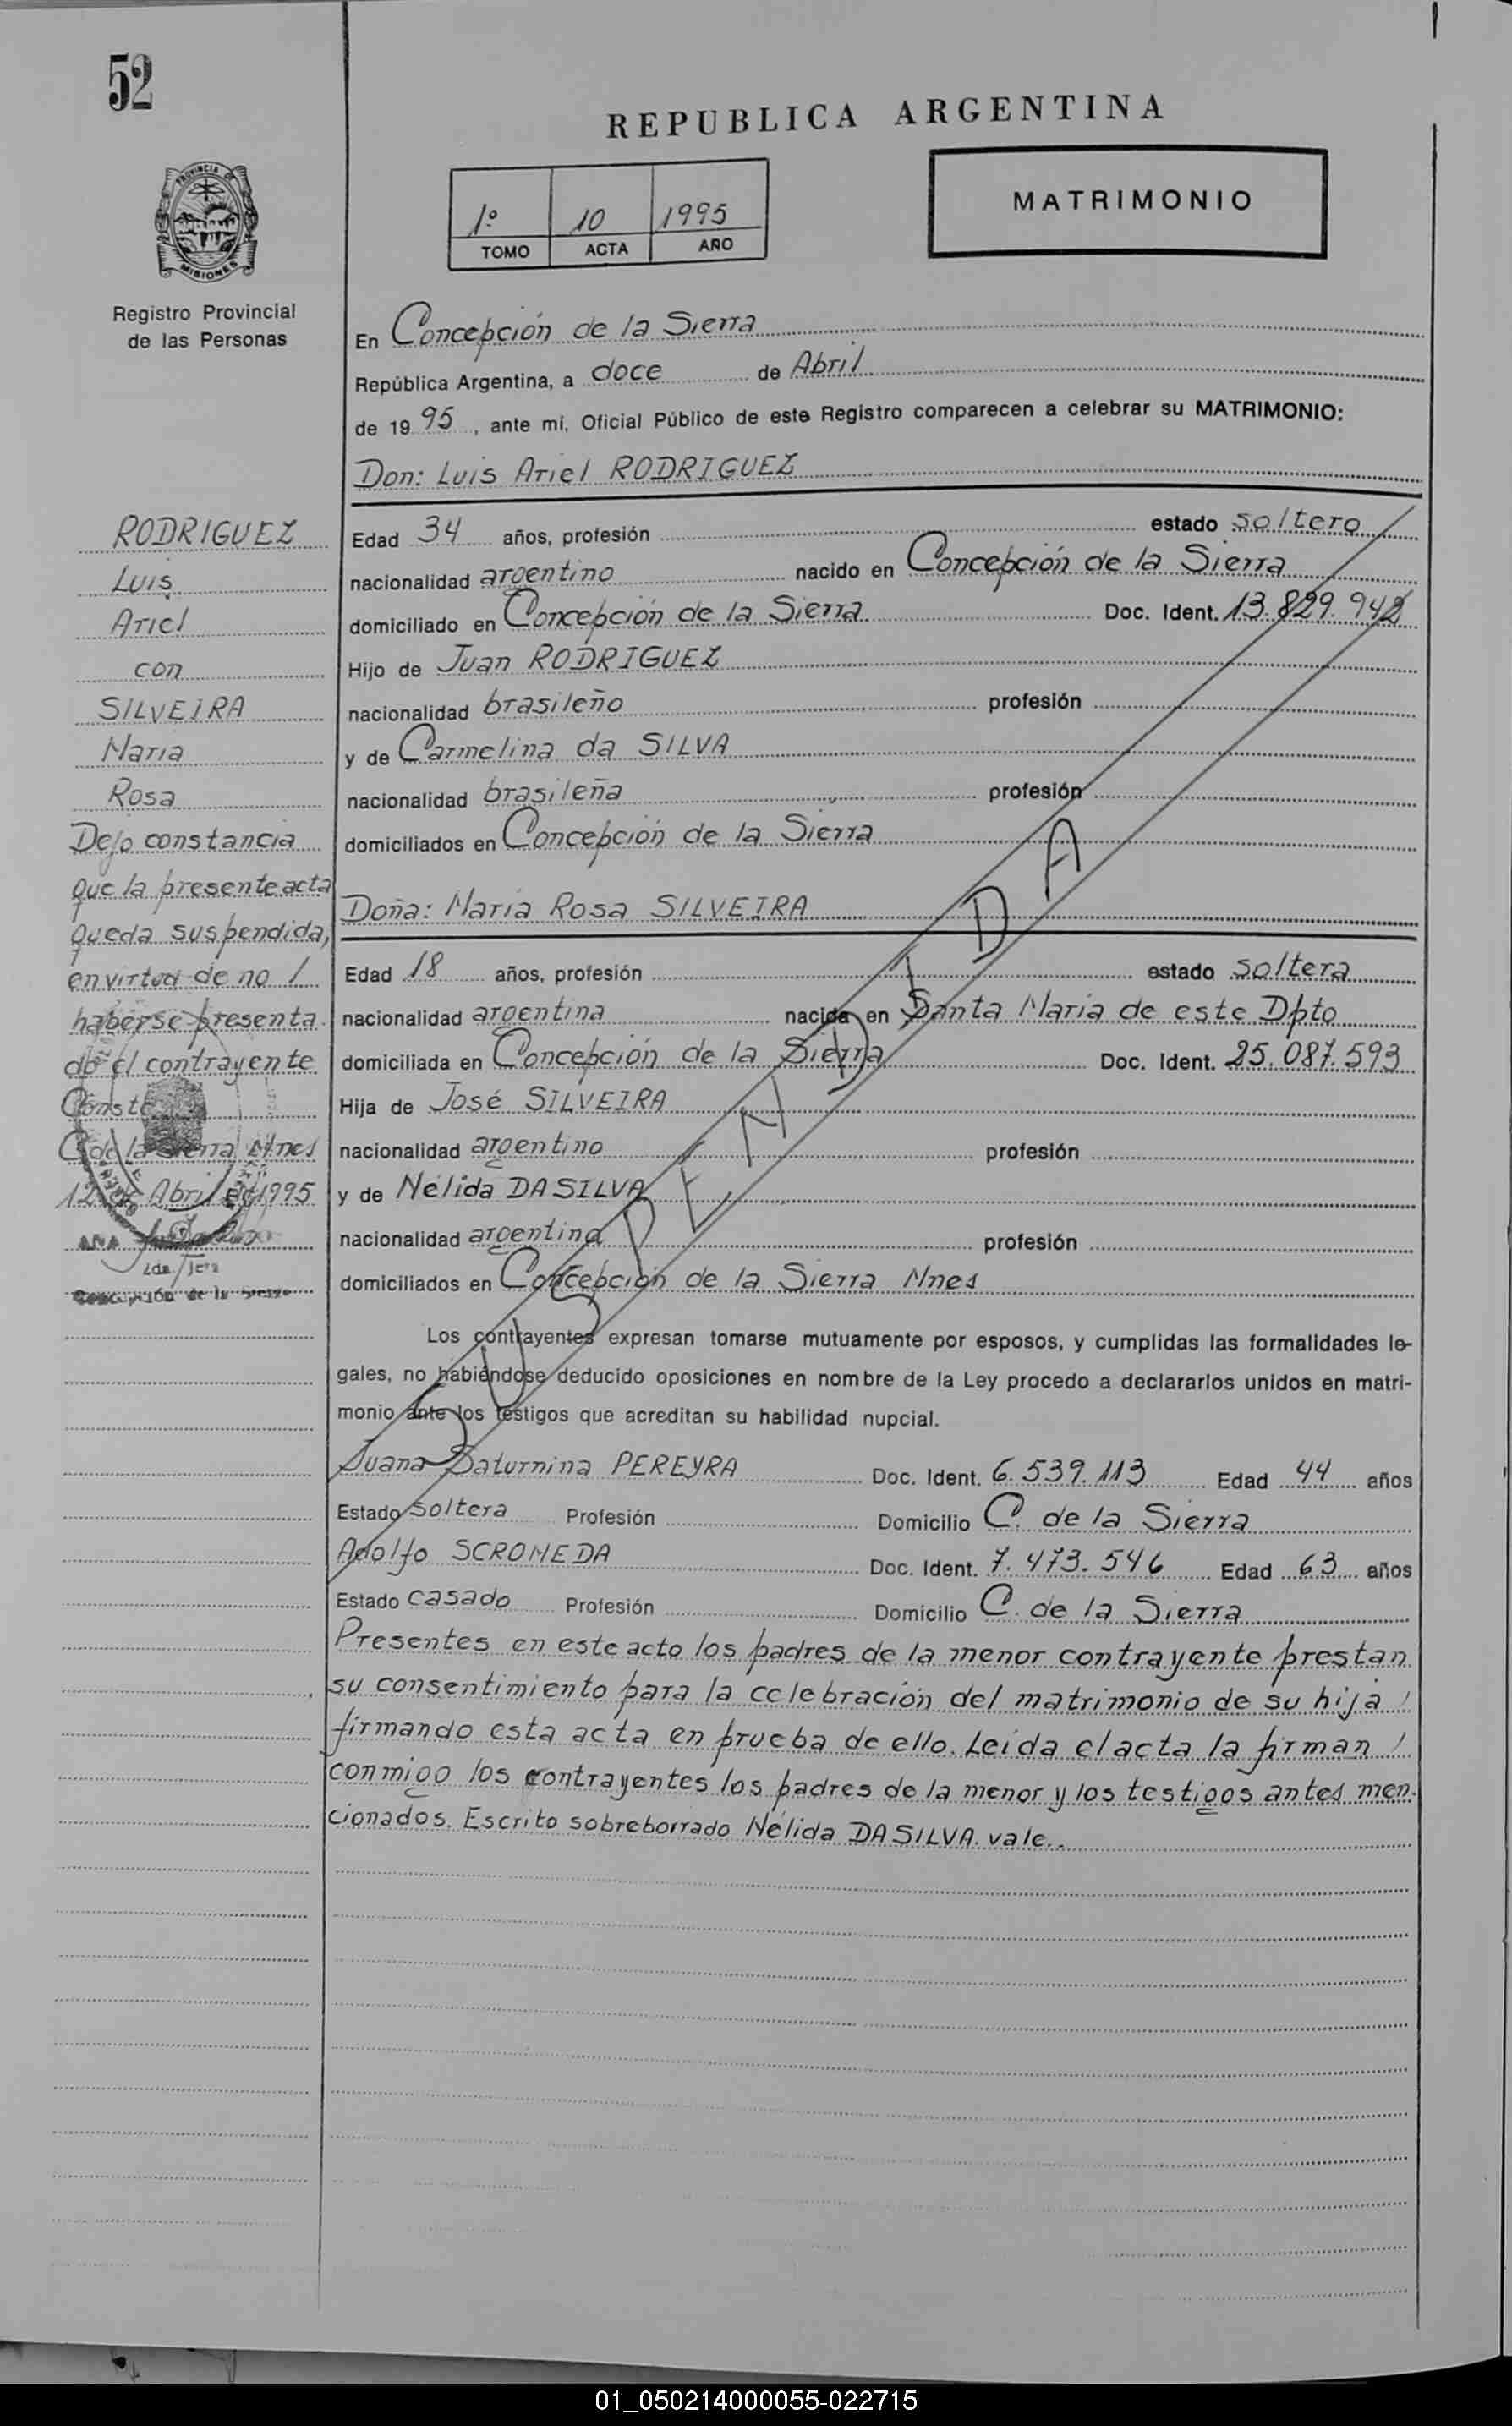 52
REPUBLICA ARGENTINA
PROVINCIA DE
MISIONES
Registro Provincial
de las Personas
1º 10 1995
TOMO ACTA AÑO
MATRIMONIO
En Concepción de la Sierra
República Argentina, a doce de Abril
de 19 95, ante mí, Oficial Público de este Registro comparecen a celebrar su MATRIMONIO:
Don: Luis Ariel RODRIGUEZ
Edad 34 años, profesión estado soltero
nacionalidad argentino nacido en Concepción de la Sierra
domiciliado en Concepción de la Sierra Doc. Ident. 13.829.942
Hijo de Juan RODRIGUEZ
nacionalidad brasileño profesión
y de Carmelina da SILVA
nacionalidad brasileña profesión
domiciliados en Concepción de la Sierra
Doña: Maria Rosa SILVEIRA
Edad 18 años, profesión estado soltera
nacionalidad argentina nacida en Santa Maria de este Dpto
domiciliada en Concepción de la Sierra Doc. Ident. 25.087.593
Hija de José SILVEIRA
nacionalidad argentino profesión
y de Nélida DA SILVA
nacionalidad argentina profesión
domiciliados en Concepción de la Sierra Mnes
Los contrayentes expresan tomarse mutuamente por esposos, y cumplidas las formalidades le-
gales, no habiéndose deducido oposiciones en nombre de la Ley procedo a declararlos unidos en matri-
monio ante los testigos que acreditan su habilidad nupcial.
Juana Saturnina PEREYRA Doc. Ident. 6.539.113 Edad 44 años
Estado soltera Profesión Domicilio C. de la Sierra
Adolfo SCROMEDA Doc. Ident. 7.473.546 Edad 63 años
Estado casado Profesión Domicilio C. de la Sierra
Presentes en este acto los padres de la menor contrayente prestan
su consentimiento para la celebración del matrimonio de su hija /
firmando esta acta en prueba de ello. Leída el acta la firman /
conmigo los contrayentes los padres de la menor y los testigos antes men-
cionados. Escrito sobreborrado Nélida DA SILVA. vale..
SUSPENDIDA
RODRIGUEZ
Luis
Ariel
con
SILVEIRA
Maria
Rosa
Dejo constancia
que la presente acta
queda suspendida,
en virtud de no /
haberse presenta-
do el contrayente
Conste
C. de la Sierra Mnes
12 de Abril de 1995
ANA
2da. Jefa
Concepción de la Sierra
01_050214000055-022715